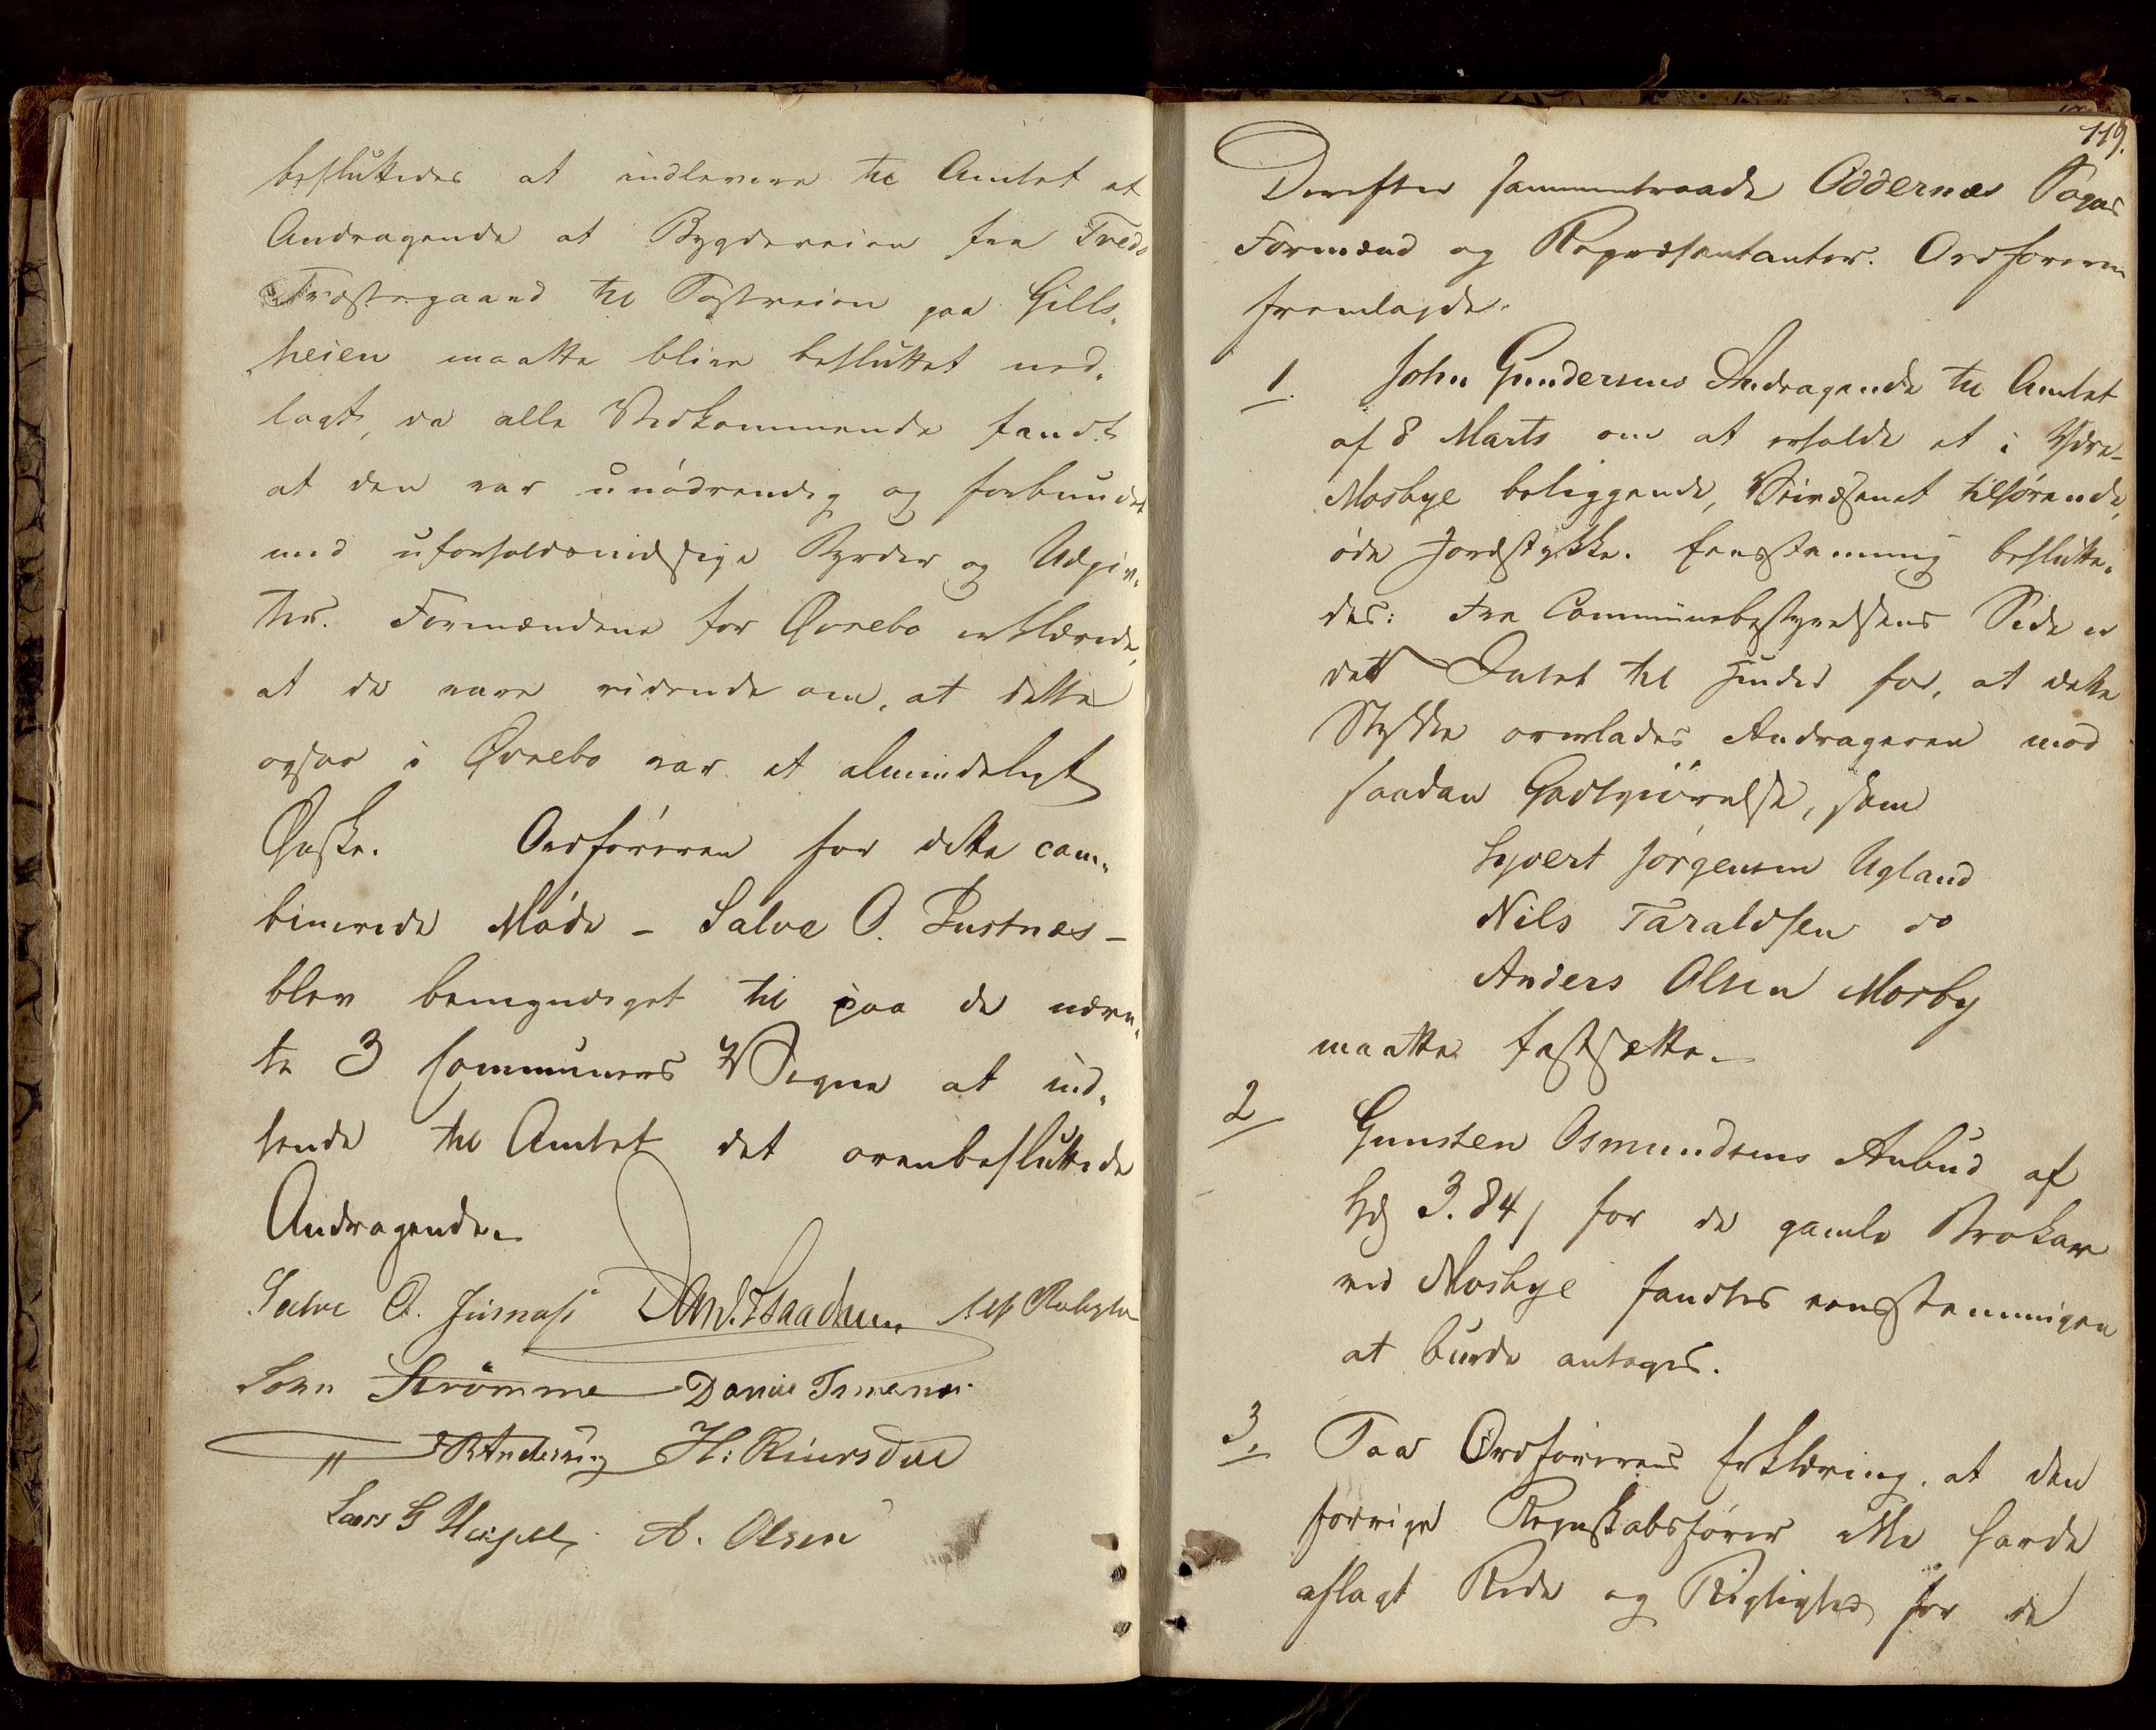 besluttedes at indlevere til Amtet et
Andragende at Bygdeveien fra Tveds
Præstegaard til Postveien paa Gills-
heien maatte blive besluttet ned-
lagt, da alle Vedkommende fandt
at den var unödvendig og forbundet
med uforholdsmæssige Byrder og Udgiv-
ter. Formændene for Øvrebo erklærede,
at de vare vidende om, at dette
ogsaa i Øvrebo var et almindeligt
Ønske. Ordföreren for dette com-
binerede Möde – Salve O. Justnæs –
blev bemyndiget til paa de nævn-
te 3 Communers Vegne at ind-
sende til Amtet det ovenbesluttede
Andragende.
Salve O. Jusnæs
Sören Strömme Daniel
R Andersen H:
Lars G A. Olsen
119.
Derefter sammentraadte Oddernæs Sogns
Formænd og Repræsentanter. Ordföreren
fremlagde.
1. John Gundersens Andragende til Amtet
af 8 Marts om at erholde et i Ydre-
Mosbye beliggende, Veivæsenet tilhörende,
öde Jordstykke. Eensstemmig beslutte-
des: Fra Communebestyrelsens Side er
det Intet til Hinder for, at dette
Stykke overlades Andrageren mod
saadan Godtgjörelse, som
Syvert Jörgensen Ugland
Nils Taraldsen do
Anders Olsen Mosby
maatte fastsætte.
2 Gunsten Osmundsens Anbud af
Spd 3. 84/ for de gamle Brokar
ved Mosbye fandtes eensstemmigen
at burde antages.
3. Paa Ordförerens Erklæring, at den
forrige Regnskabsförer ikke havde
aflagt Rede og Rigtighed for de